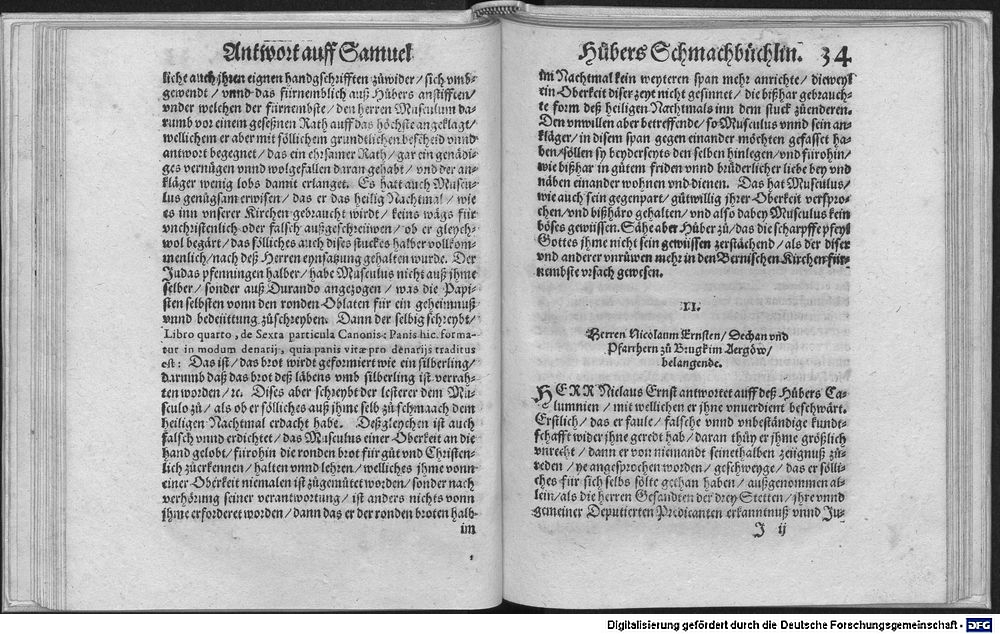 Antwort auff Samuel
liche auch jhren eignen handgschrifften zůwider / sich vmb-
gewendt / vnnd das fürnemblich auß Hůbers anstifften /
vnder welchen der fürnembste / den herren Musculum da-
rumb vor einem geseßnen Rath auff das höchste angeklagt /
wellichem er aber mit söllichem grundtlichen bescheid vnnd
antwort begegnet / das ein ehrsamer Rath / gar ein genädi-
ges vernügen vnnd wolgefallen daran gehabt / vnd der an-
kläger wenig lobs damit erlanget. Es hatt auch Muscu-
lus genůgsam erwisen / das er das heilig Nachtmal / wie
es inn vnserer Kirchen gebraucht wirdt / keins wägs für
vnchristenlich oder falsch außgeschreüwen / ob er gleych-
wol begärt / das söllliches auch dises stuckes halber vollkom-
menlich / nach deß Herren eynsatzung gehalten wurde. Der
Judas pfenningen halber / habe Musculus nicht auß jhme
selber / sonder auß Durando angezogen / was die Papi-
sten selbsten vonn den ronden Oblaten für ein geheimnuß
vnnd bedeüttung zůschreyben. Dann der selbig schreybt /
Libro quarto, de Sexta particula Canonis: Panis hic forma-
tur in modum denarij, quia panis vitæ pro denarijs traditus
est: Das ist / das brot wirdt geformiert wie ein silberling /
darumb daß das brot deß läbens vmb silberling ist verrah-
ten worden / ꝛc. Dises aber schreybt der lesterer dem Mu-
sculo zů / als ob er sölliches auß jhme selb zů schmaach dem
heiligen Nachtmal erdacht habe. Deßgleychen ist auch
falsch vnnd erdichtet / das Musculus einer Oberkeit an die
hand gelobt / fürohin die ronden brot für gůt vnd Christen-
lich zůerkennen / halten vnnd lehren / welliches jhme vonn
einer Oberkeit niemalen ist zůgemůtet worden / sonder nach
verhörung seiner verantwortung / ist anders nichts vonn
jhme erforderet worden / dann das er der ronden broten halb
im
Hůbers Schmachbüchlin. 34
im Nachtmal kein weyteren span mehr anrichte / dieweyl
ein Oberkeit diser zeyt nicht gesinnet / die bißhar gebrauch-
te form deß heiligen Nachtmals inn dem stuck zůenderen.
Den vnwillen aber betreffende / so Musculus vnnd sein an-
kläger / in disem span gegen einander möchten gefasset ha-
ben / söllen sy beyderseyts den selben hinlegen / vnd fürohin /
wie bißhar in gůtem friden vnnd brüderlicher liebe bey vnd
näben einander wohnen vnd dienen. Das hat Musculus /
wie auch sein gegenpart / gůtwillig jhrer Oberkeit verspro-
chen / vnd bißhäro gehalten / vnd also dabey Musculus kein
böses gewüssen. Sähe aber Hůber zů / das die scharpffe pfeyl
Gottes jhme nicht sein gewüssen zerstächend / als der diser
vnd anderer vnrůwen mehr in den Bernischen Kirchen für-
nembste vrsach gewesen.
II.
Herren Nicolaum Ernsten / Dechan vnd
Pfarrhern zů Brugk im Aergöw /
belangende.
HERR Niclaus Ernst antwortet auff deß Hůbers Ca-
lumnien / mit wellichen er jhne vnuerdient beschwärt.
Erstlich / das er faule / falsche vnnd vnbeständige kundt-
schafft wider jhne geredt hab / daran thůy er jhme größlich
vnrecht / dann er von niemandt seinethalben zeügnuß zů-
reden / ye angesprochen worden / geschweyge / das er sölli-
ches für sich selbs sölte gethan haben / außgenommen al-
lein / als die herren Gesandten der drey Stetten / jhre vnnd
gemeiner Deputierten Predicanten erkanntnuß vnnd Ju-
J ij
Digitalisierung gefördert durch die Deutsche Forschungsgemeinschaft - DFG